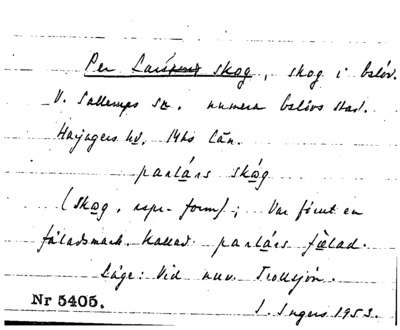 Per Lars skog, skog i Eslöv.
V. Sallerups sn. numera Eslövs stad.
Harjagers hd. Mhs län.
parlárs skóg
(skog, rspr. form); Var förut en
fäladsmark kallad parlárs fælad.
Läge: Vid nuv. Trollsjön.
Nr 5405. I. Ingers 1953.